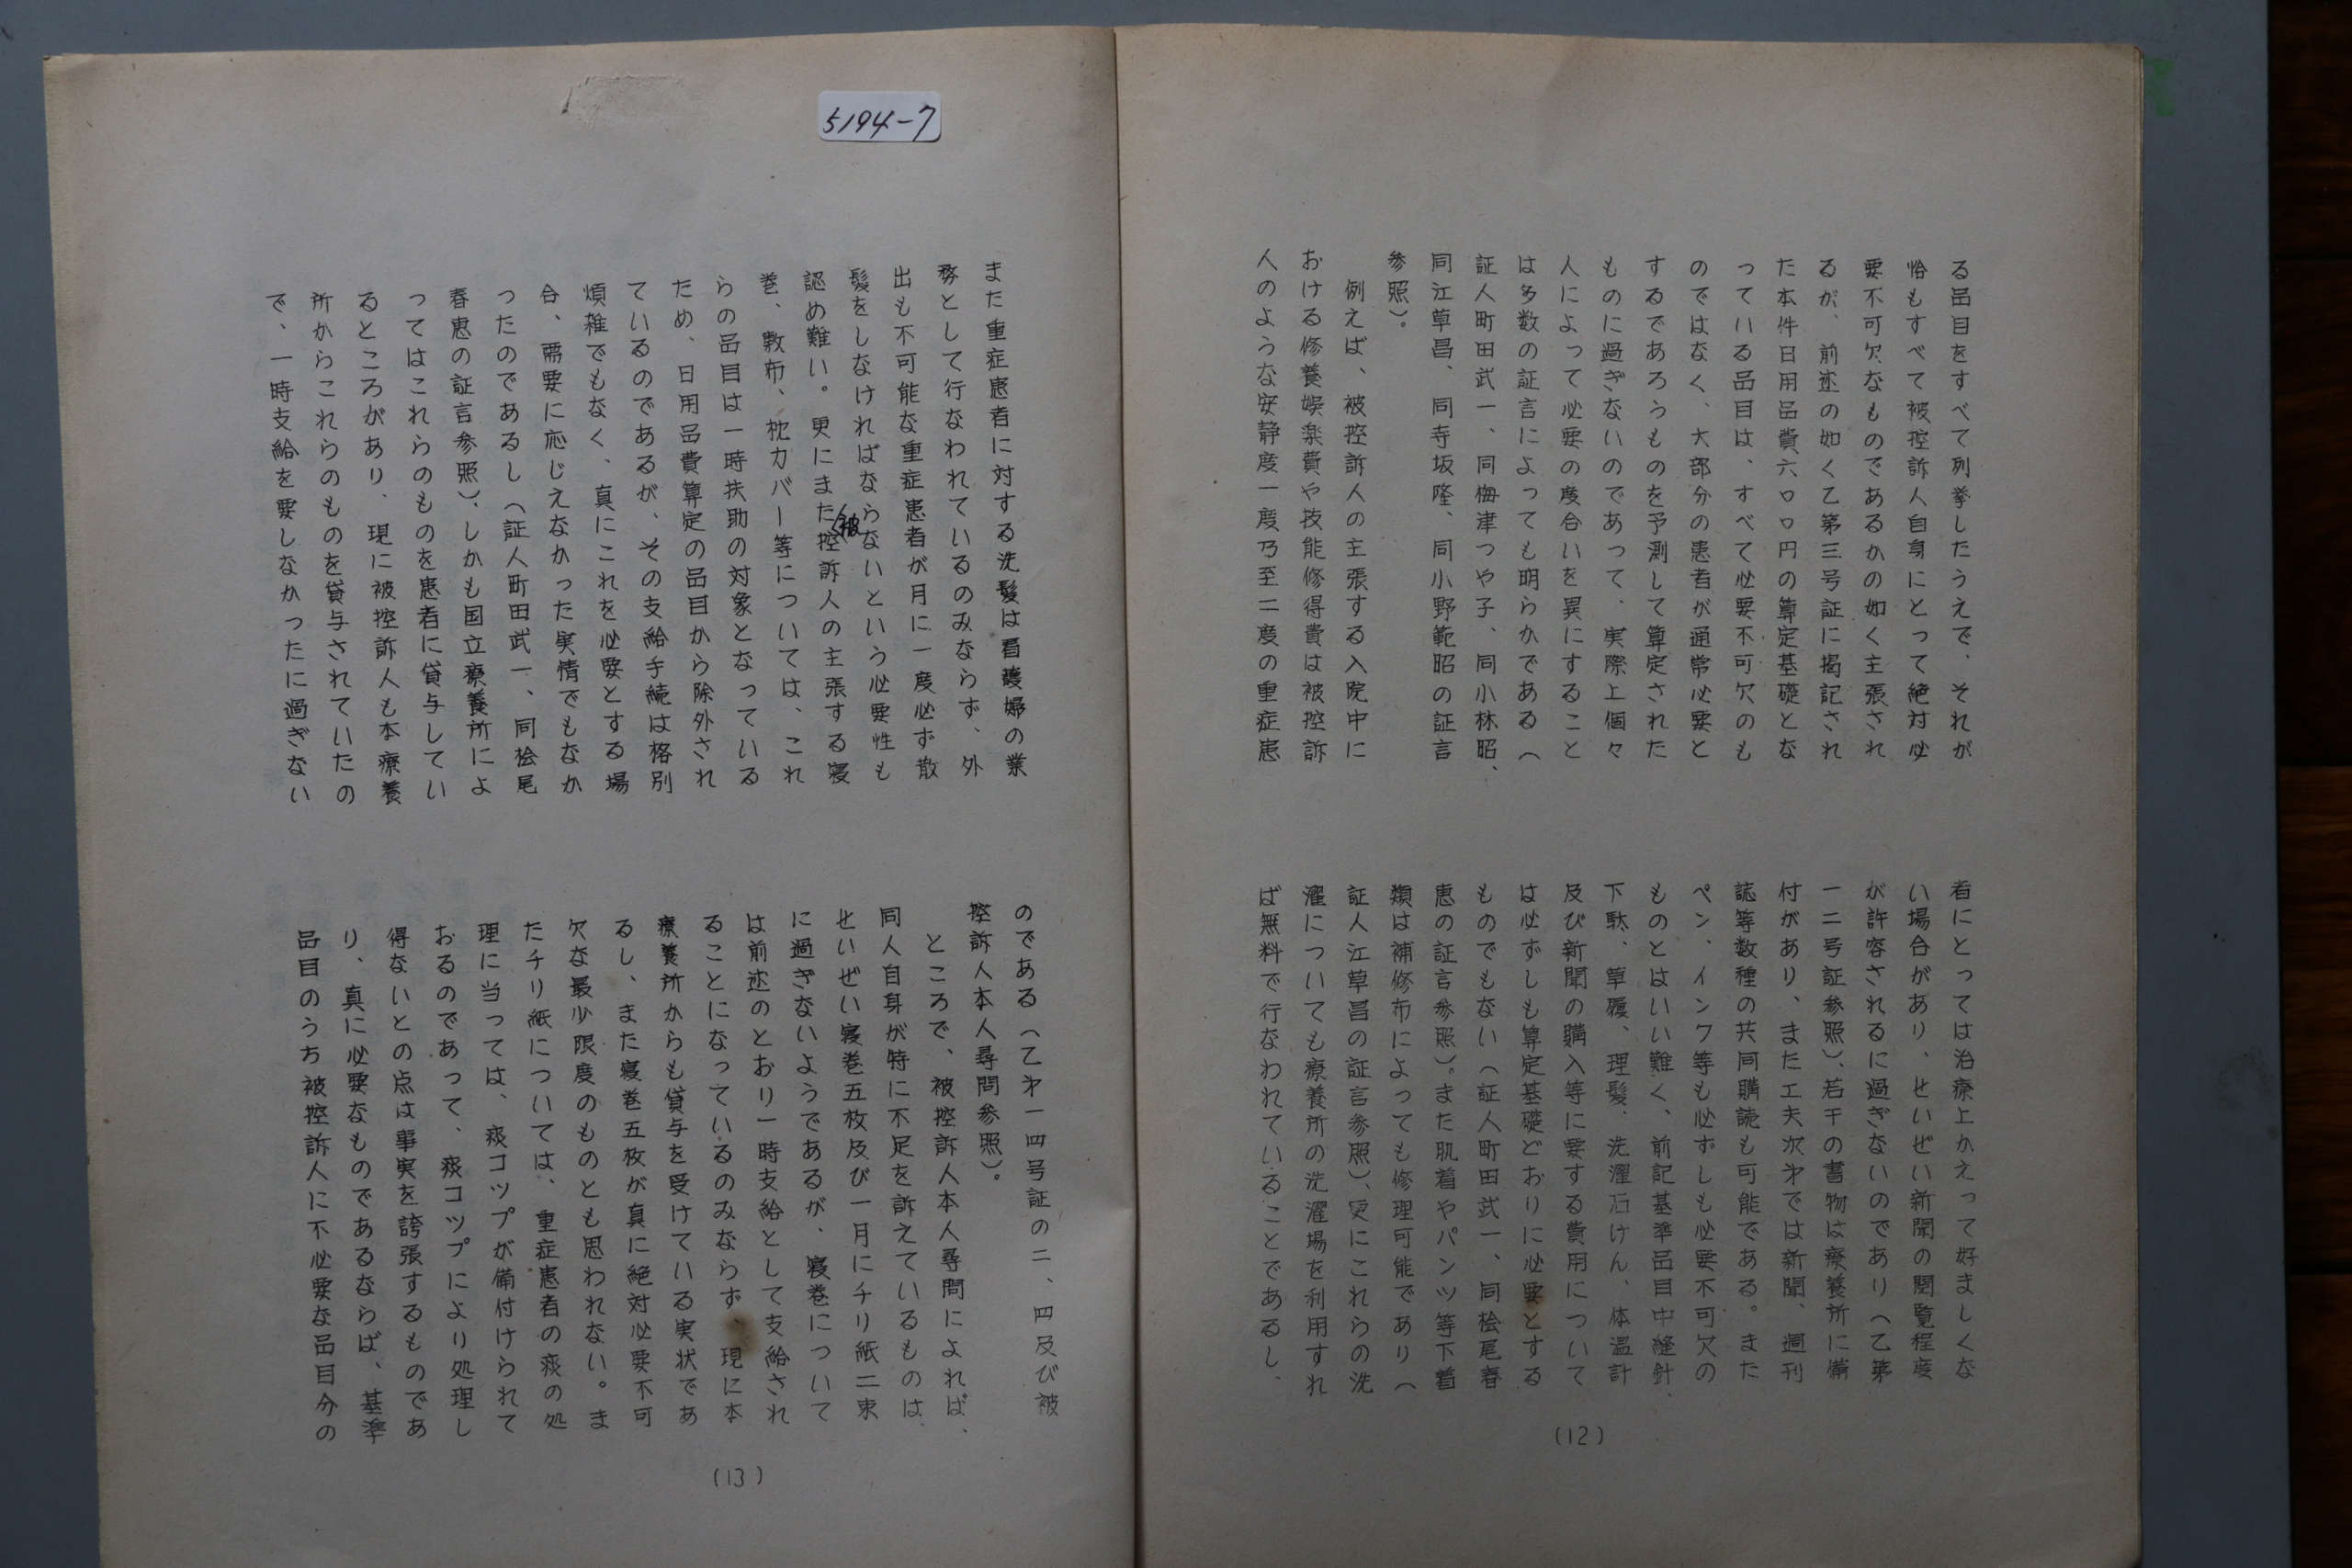 る品目をすべて列挙したうえで、それが
恰もすべて被控訴人自身にとって絶対必
要不可欠なものであるかの如く主張され
るが、前述の如く乙第三号証に掲記され
た本件日用品費六〇〇円の算定基礎とな
っている品目は、すべて必要不可欠のも
のではなく、大部分の患者が通常必要と
するであろうものを予測して算定された
ものに過ぎないのであって、実際上個々
人によって必要の度合いを異にすること
は多数の証言によっても明らかである（
証人町田武一、同梅津つや子、同小林昭、
同江草昌、同寺坂隆、同小野範昭の証言
参照）。
例えば、被控訴人の主張する入院中に
おける修養娯楽費や技能修得費は被控訴
人のような安静度一度乃至二度の重症患
者にとっては治療上かえって好ましくな
い場合があり、せいぜい新聞の閲覧程度
が許容されるに過ぎないのであり（乙第
一二号証参照）、若干の書物は療養所に備
付があり、また工夫次才では新聞、週刊
誌等数種の共同購読も可能である。また
ペン、インク等も必ずしも必要不可欠の
ものとはいい難く、前記基準品目中縫針、
下駄、草履、理髪、洗濯石けん、体温計
及び新聞の購入等に要する費用について
は必ずしも算定基礎どおりに必要とする
ものでもない（証人町田武一、同桧尾春
恵の証言参照）。また肌着やパンツ等下着
類は補修布によっても修理可能であり（
証人江草昌の証言参照）、更にこれらの洗
濯についても療養所の洗濯場を利用すれ
ば無料で行なわれていることであるし、
(12)
5194-7
また重症患者に対する洗髪は看護婦の業
務として行なわれているのみならず、外
出も不可能な重症患者が月に一度必ず散
髪をしなければならないという必要性も
認め難い。更にまた被控訴人の主張する寝
巻、敷布、枕カバー等については、これ
らの品目は一時扶助の対象となっている
ため、日用品費算定の品目から除外され
ているのであるが、その支給手続は格別
煩雑でもなく、真にこれを必要とする場
合、需要に応じえなかった実情でもなか
ったのであるし（証人町田武一、同桧尾
春恵の証言参照）、しかも国立療養所によ
ってはこれらのものを患者に貸与してい
るところがあり、現に被控訴人も本療養
所からこれらのものを貸与されていたの
で、一時支給を要しなかったに過ぎない
のである（乙才一四号証の二、四及び被
控訴人本人尋問参照）。
ところで、被控訴人本人尋問によれば、
同人自身が特に不足を訴えているものは、
せいぜい寝巻五枚及び一月にチリ紙二束
に過ぎないようであるが、寝巻について
は前述のとおり一時支給として支給され
ることになっているのみならず、現に本
療養所からも貸与を受けている実状であ
るし、また寝巻五枚が真に絶対必要不可
欠な最少限度のものとも思われない。ま
たチリ紙については、重症患者の痰の処
理に当っては、痰コツプが備付けられて
おるのであって、痰コツプにより処理し
得ないとの点は事実を誇張するものであ
り、真に必要なものであるならば、基準
品目のうち被控訴人に不必要な品目分の
(13)